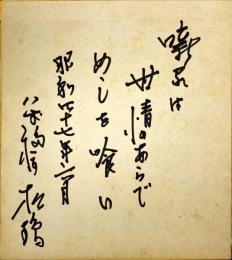 噺家は
世情のあらで
めしを喰い
昭和四十七年二月
六代目 松鶴